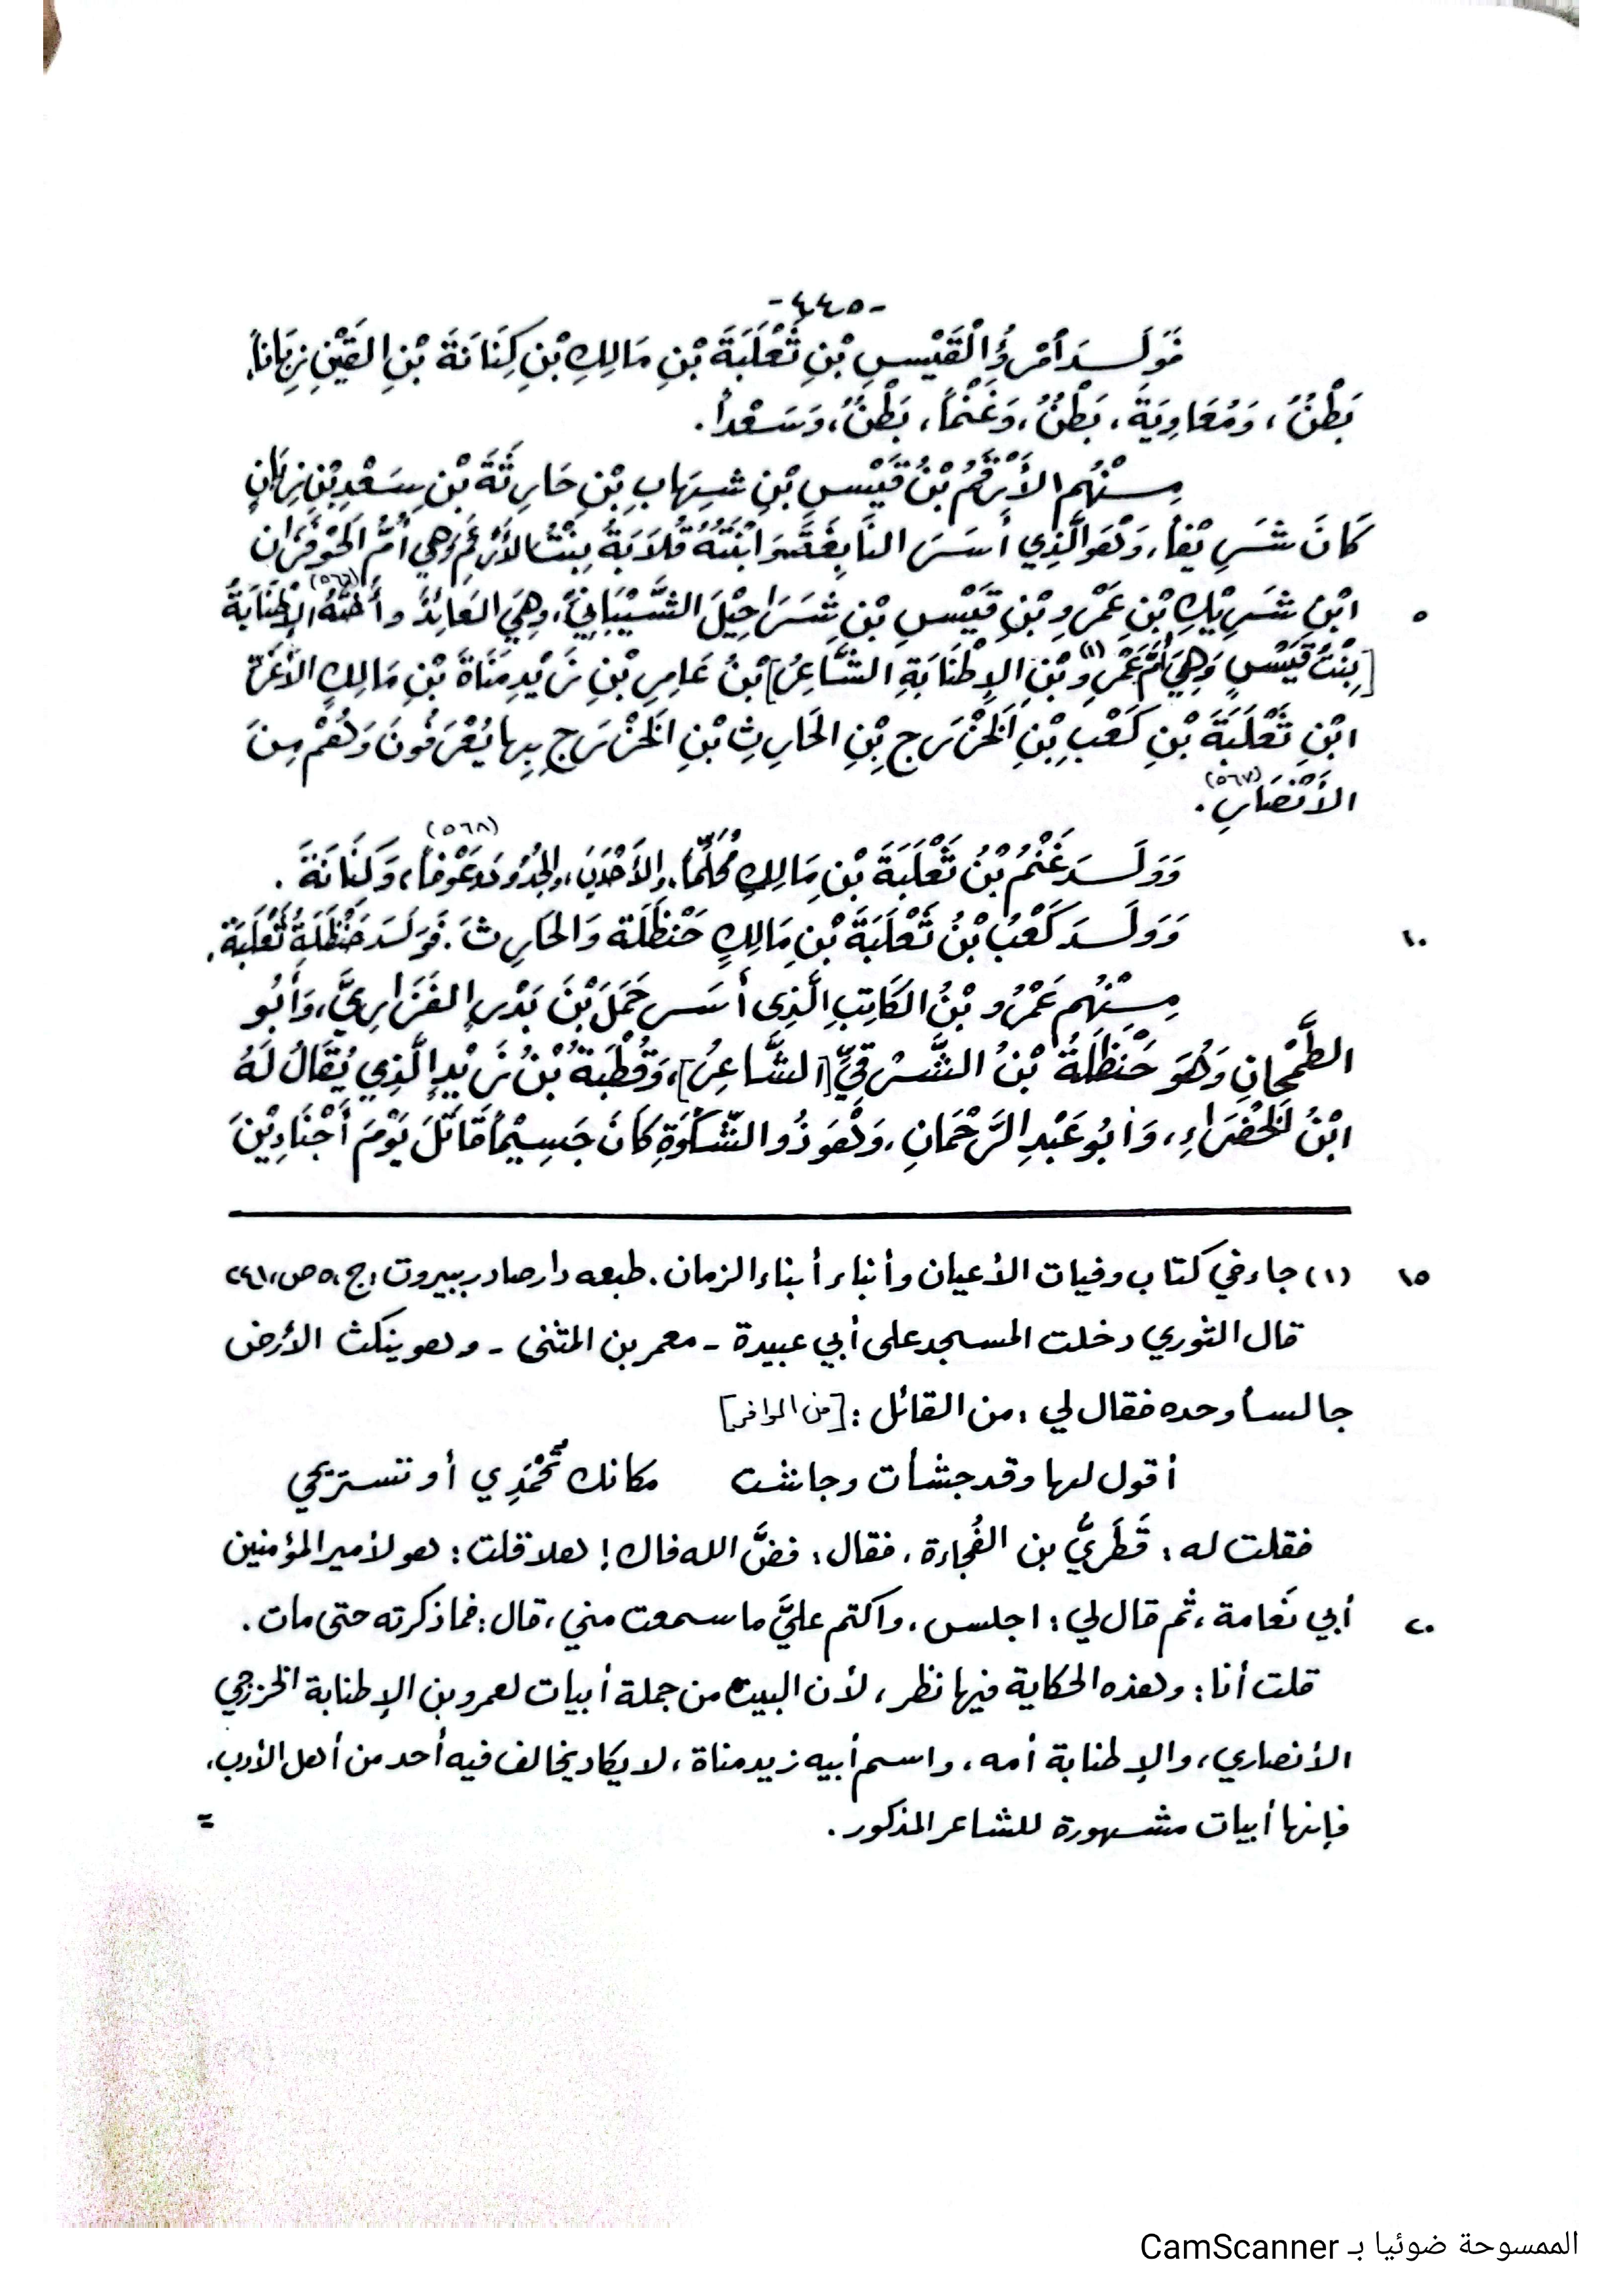 -٤٤٥-
فَوَلَدَ امْرُؤُ الْقَيْسِ بْنِ ثَعْلَبَةَ بْنِ مَالِكِ بْنِ كِنَانَةَ بْنِ القَيْنِ زِمَّاناً،
بَطْنٌ، وَمُعَاوِيَةَ، بَطْنٌ، وَغَنْماً، بَطْنٌ، وَسَعْداً.
مِنْهُم الأَرْقَمُ بْنُ قَيْسِ بْنِ شِهَابِ بْنِ حَارِثَةَ بْنِ سَعْدِ بْنِ زِمَّانٍ
كَانَ شَرِيْفاً، وَهُوَ الَّذِي أَسَرَ النَّابِغَةَ وَابْنَتُهُ قُلَابَةُ بِنْتُ الأَرْقَمِ وَهِيَ أُمُّ الحَوْفَزَانِ
ابْنِ شَرِيْكِ بْنِ عَمْرِو بْنِ قَيْسِ بْنِ شَرَاحِيْلَ الشَّيْبَانِيِّ، وَهِيَ العَائِذُ وأُخْتُهُ (٥٦٦) الإِطْنَابَةُ ٥
[بِنْتُ قَيْسٍ وَهِيَ أُمُّ عَمْرِو (١) بْنِ الإِطْنَابَةِ الشَّاعِرُ] بْنُ عَامِرِ بْنِ زَيْدِ مَنَاةَ بْنِ مَالِكٍ الأَغَرِّ
ابْنِ ثَعْلَبَةَ بْنِ كَعْبِ بْنِ الخَزْرَجِ بْنِ الحَارِثِ بْنِ الخَزْرَجِ بِهِا يُعْرَفُونَ وَهُمْ مِنَ
الأَنْصَارِ (٥٦٧).
وَوَلَدَ غَنْمُ بْنُ ثَعْلَبَةَ بْنِ مَالِكٍ مُحَلِّماً، والأَحْدَبَ، (٥٦٨) وَعَوْفاً، وَكِنَانَةَ.
وَوَلَدَ كَعْبُ بْنُ ثَعْلَبَةَ بْنِ مَالِكٍ حَنْظَلَةَ وَالحَارِثَ. فَوَلَدَ حَنْظَلَةُ ثَعْلَبَةَ. ١٠
مِنْهُم عَمْرُو بْنُ الكَاتِبِ الَّذِي أَسَرَ حَمَلَ بْنَ بَدْرٍ الفَزَارِيَّ، وَأَبُو
الطَّمَحَانِ وَهُوَ حَنْظَلَةُ بْنُ الشَّرْقِيِّ [الشَّاعِرُ]، وَقُطْبَةُ بْنُ زَيْدٍ الَّذِي يُقَالُ لَهُ
ابْنُ الخَضْرَاءِ، وَأَبُو عَبْدِ الرَّحْمَانِ، وَهُوَ ذُو الشَّكْوَةِ كَانَ جَسِيْماً قَاتَلَ يَوْمَ أَجْنَادِيْنَ
(١) جاء في كتاب وفيات الأعيان وأنباء أبناء الزمان. طبعه دار صادر ببيروت: ج، ٥ ص، ٢٤١ ١٥
قال الثوري دخلت المسجد على أبي عبيدة - معمر بن المثنى - وهو ينكث الأرض
جالساً وحده فقال لي: من القائل: [من الوافر]
أقول لها وقد جشأت وجاشت مكانك تُحْمَدِي أو تستريحي
فقلت له: قَطَرِيُّ بن الفُجاءة، فقال: فضَّ الله فاك! هلا قلت: هو لأمير المؤمنين
أبي نَعامة، ثم قال لي: اجلس، واكتم عليَّ ما سمعت مني، قال: فما ذكرته حتى مات. ٢٠
قلت أنا: وهذه الحكاية فيها نظر، لأن البيت من جملة أبيات لعمرو بن الإطنابة الخزرجي
الأنصاري، والإطنابة أمه، واسم أبيه زيد مناة، لا يكاد يخالف فيه أحد من أهل الأدب،
فإنها أبيات مشهورة للشاعر المذكور. =
الممسوحة ضوئيا بـ CamScanner